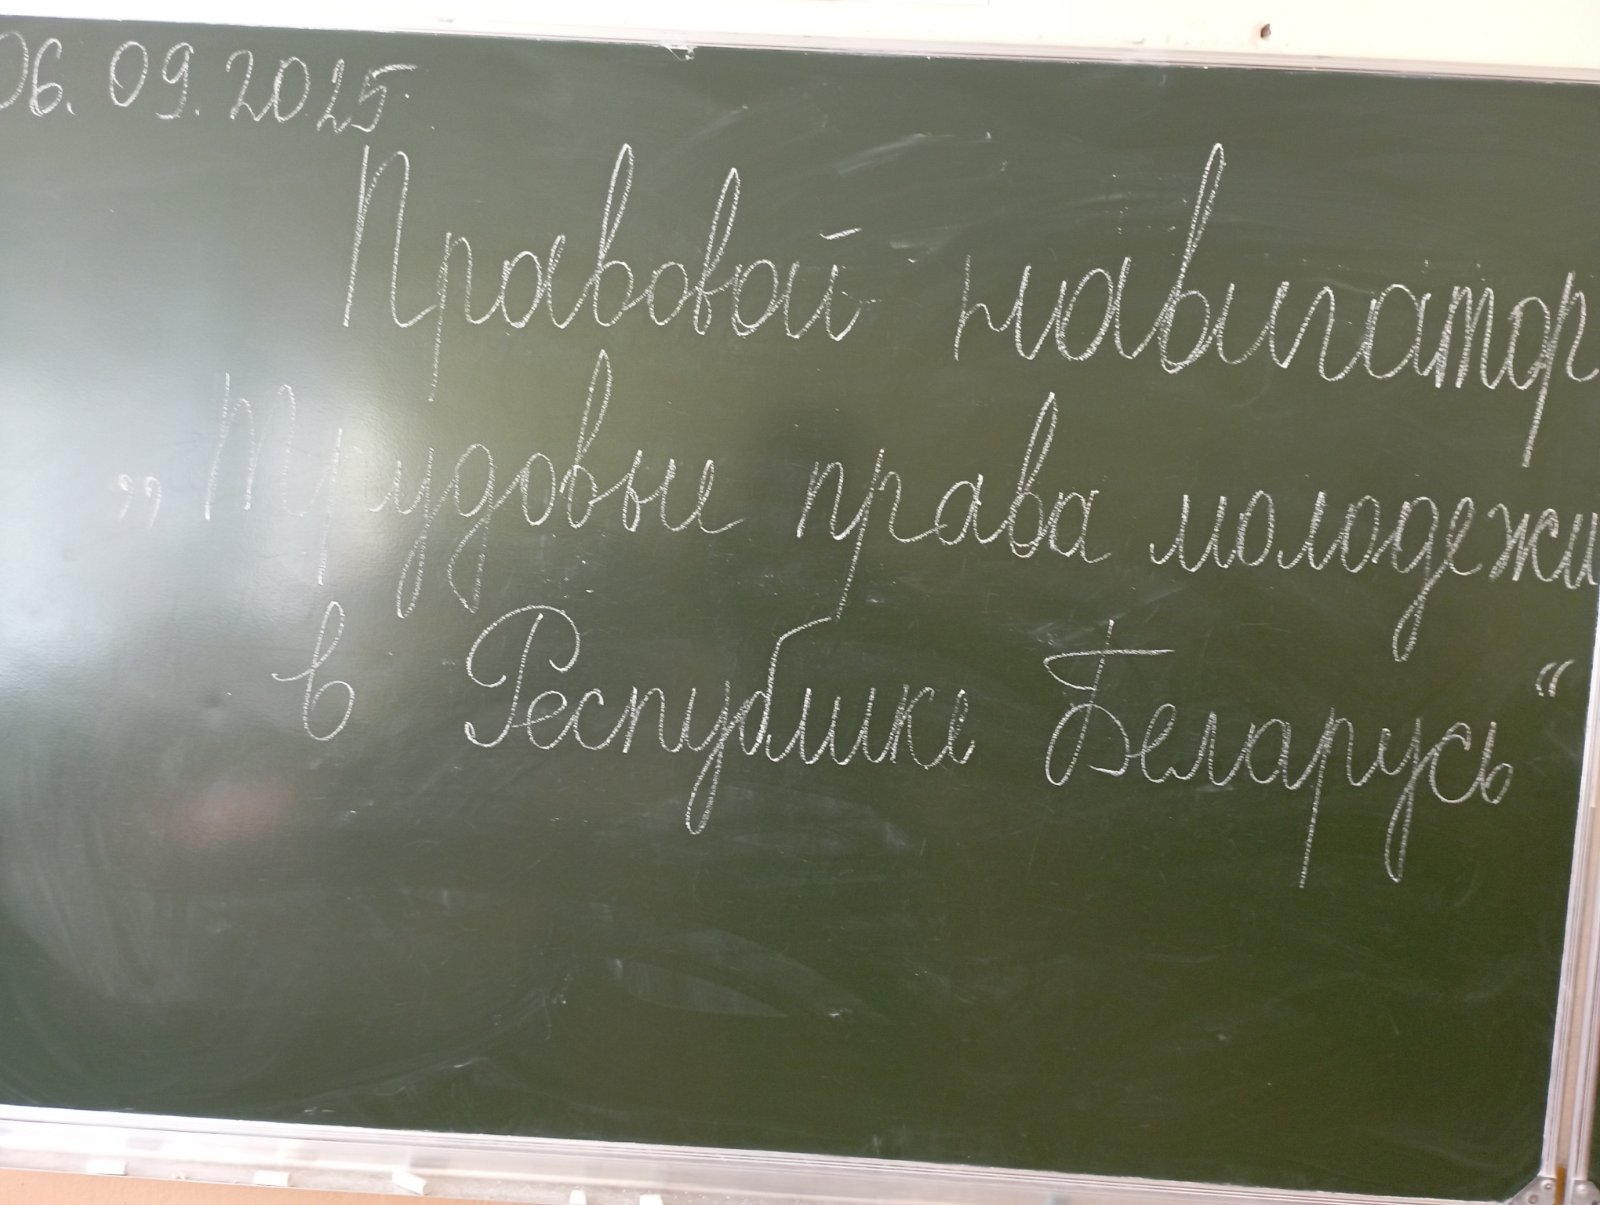 06.09.2025.
Правовой навигатор
„Трудовые права молодежи
в Республике Беларусь“